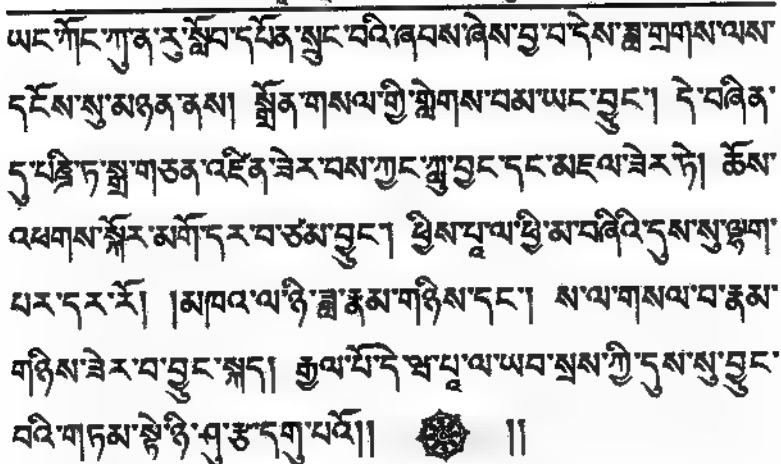 ཡང་ཀོང་ཀུ་ན་རུ་སློབ་དཔོན་སྲུང་བའི་ཞབས་ཞེས་བྱ་བ་དེས་ཟླ་གྲགས་ལས་
དངོས་སུ་མཉན་ནས། སྒྲོན་གསལ་གྱི་གླེགས་བམ་ཡང་བྱུང་། དེ་བཞིན་
དུ་པཎྜི་ཏ་སྒྲ་གཅན་འཛིན་ཟེར་བས་ཀྱང་ཀླུ་བྱང་དང་མཇལ་ཟེར་ཏེ། ཆོས་
འཕགས་སྐོར་མགོ་དར་བ་ཙམ་བྱུང་། ཕྱིས་པཱ་ལ་ཕྱི་མ་བཞིའི་དུས་སུ་ལྷག་
པར་དར་རོ། །མཁའ་ལ་ཉི་ཟླ་རྣམ་གཉིས་དང་། ས་ལ་གསལ་བ་རྣམ་
གཉིས་ཟེར་བ་བྱུང་སྐད། རྒྱལ་པོ་དེ་ཝ་པཱ་ལ་ཡབ་སྲས་ཀྱི་དུས་སུ་བྱུང་
བའི་གཏམ་སྟེ་ཉི་ཤུ་རྩ་དགུ་པའོ།། །།